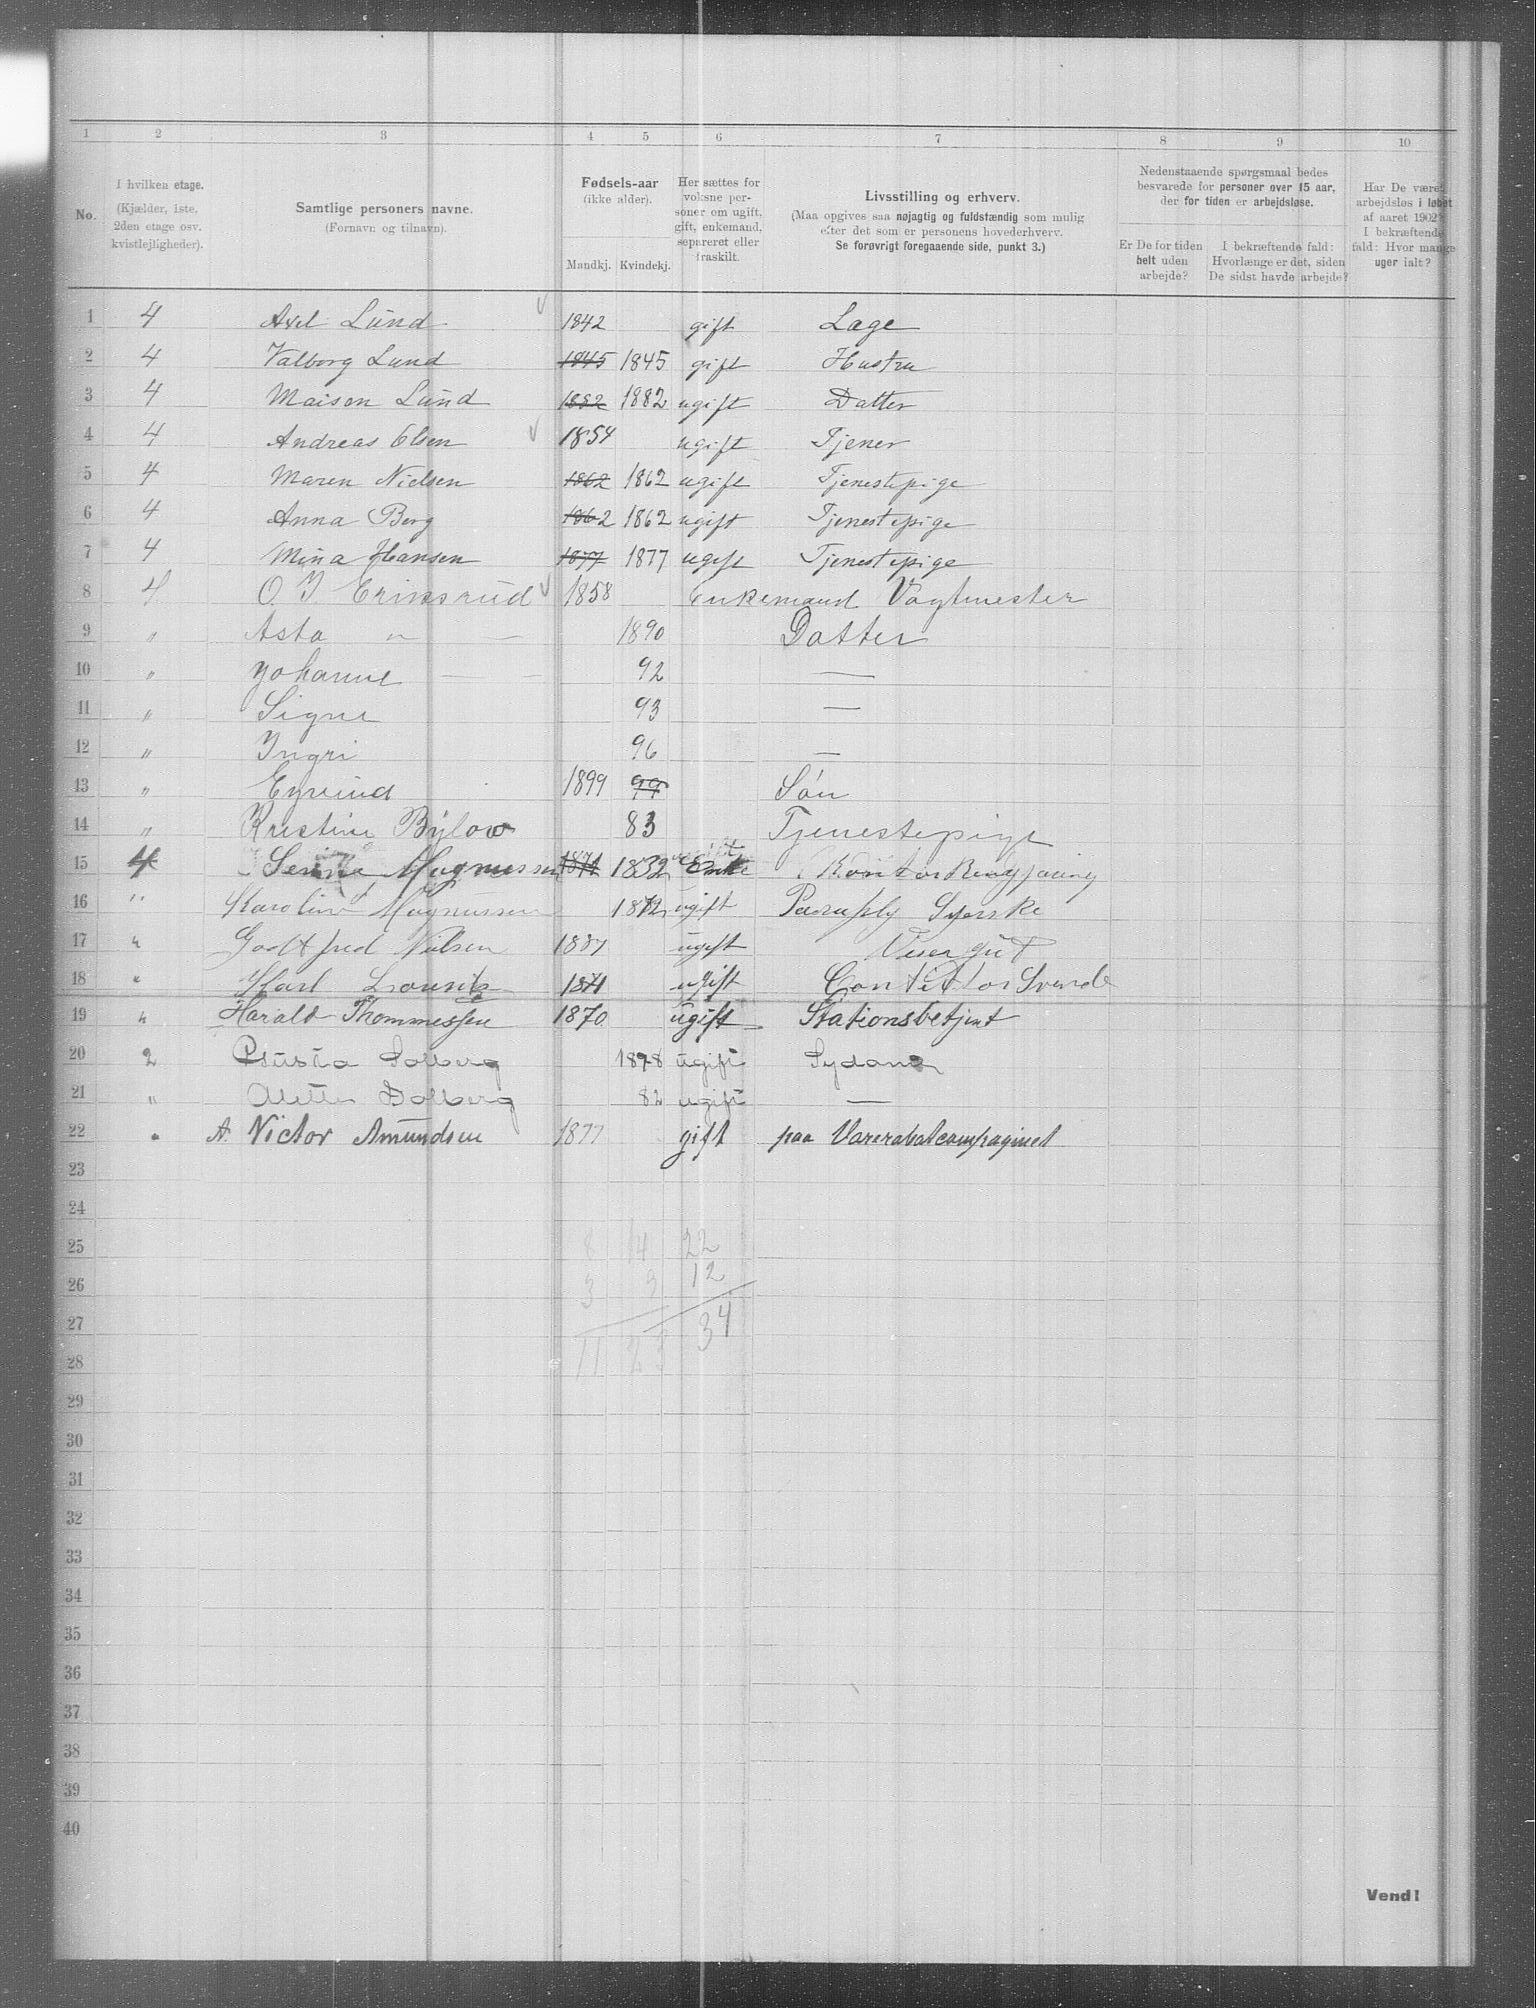 1 2 3 4 5 6 7 8 9 10
No.
I hvilken etage.
(Kjælder, 1ste,
2den etage osv.
kvistlejligheder).
Samtlige personers navne.
(Fornavn og tilnavn).
Fødsels-aar
(ikke alder).
Mandkj. Kvindekj.
Her sættes for
voksne per-
soner om ugift,
gift, enkemand,
separeret eller
fraskilt.
Livsstilling og erhverv.
(Maa opgives saa nøjagtig og fuldstændig som mulig
efter det som er personens hovederhverv.
Se forøvrigt foregaaende side, punkt 3.)
Nedenstaaende spørgsmaal bedes
besvarede for personer over 15 aar,
der for tiden er arbejdsløse.
Er De for tiden
helt uden
arbejde?
I bekræftende fald:
Hvorlænge er det, siden
De sidst havde arbejde?
Har De været
arbejdsløs i løbet
af aaret 1902?
I bekræftende
fald: Hvor mange
uger ialt?
1 4 Axel Lund 1842 gift Læge
2 4 Valborg Lund 1845 1845 gift Hustru
3 4 Maisen Lund 1882 1882 ugift Datter
4 4 Andreas Olsen 1854 ugift Tjener
5 4 Maren Nielsen 1862 1862 ugift Tjenestepige
6 4 Anna Berg 1862 1862 ugift Tjenestepige
7 4 Mina Hansen 1877 1877 ugift Tjenestepige
8 4 O. J. Eriksrud 1858 Enkemand Vagtmester
9 " Asta " — 1890 Datter
10 " Johanne — — 92 —
11 " Signe 93 —
12 " Ingri 96 —
13 " Eyvind 1899 99 Søn
14 " Kristine Bülow 83 Tjenestepige
15 4 Magnussen 1872 1832 Enke
16 " Karoline Magnussen 1872 ugift Paraply Syerske
17 " Godtfred Nilsen 1887 ugift Visergut
18 " Karl 1871 ugift Svend
19 " Harald Thommessen 1870 ugift Stationsbetjent
20 2 Solberg 1878 ugift Sydame
21 " Solberg 82 ugift —
22 " A. Victor Amundsen 1877 gift paa Varerabatcompagniet
23
24
25 8 14 22
26 3 9 12
27 34
28 11 23
29
30
31
32
33
34
35
36
37
38
39
40
Vend!